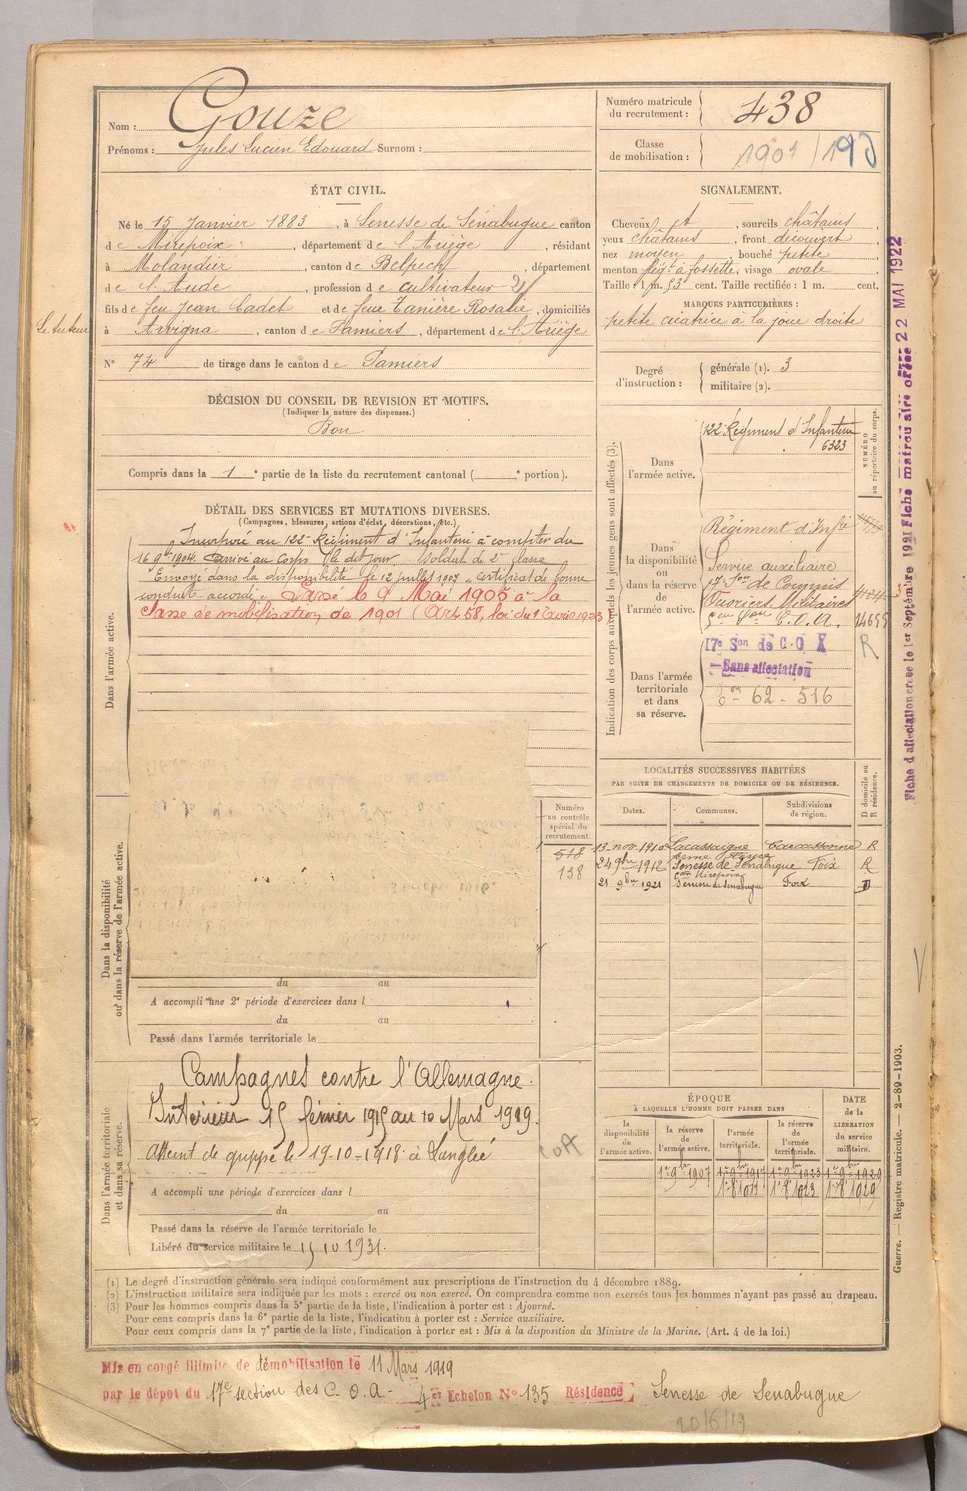 Nom : Gouze
Prénoms : Jules Lucien Edouard Surnom :
Numéro matricule du recrutement : 438
Classe de mobilisation : 1901
ÉTAT CIVIL.
Né le 15 Janvier 1883, à Senesse de Senabugue canton
de Mirepoix, département de l'Ariège, résidant
à Molandier, canton de Belpech, département
de l'Aude, profession de cultivateur
fils de feu Jean Cadet et de feue Tanière Rosalie, domiciliés
le tuteur à Arvigna, canton de Pamiers, département de l'Ariège
N° 74 de tirage dans le canton de Pamiers
SIGNALEMENT.
Cheveux et, sourcils châtains,
yeux châtains, front découvert,
nez moyen, bouche petite,
menton à fossette, visage ovale
Taille : 1 m. 53 cent. Taille rectifiée : 1 m. cent.
MARQUES PARTICULIÈRES :
petite cicatrice à la joue droite
Degré d'instruction : générale (1). 3
militaire (2).
DÉCISION DU CONSEIL DE REVISION ET MOTIFS.
(Indiquer la nature des dispenses.)
Bon
Compris dans la 1e partie de la liste du recrutement cantonal ( e portion).
DÉTAIL DES SERVICES ET MUTATIONS DIVERSES.
(Campagnes, blessures, actions d'éclat, décorations, etc.)
Dans l'armée active.
Incorporé au 122e Régiment d'Infanterie à compter du
16 9bre 1904. Arrivé au corps le dit jour soldat de 2e classe
Envoyé dans la disponibilité le 12 juillet 1907 certificat de bonne
conduite accordé. Passé le 9 Mai 1905 à la
classe de mobilisation de 1901 (Art. 58, loi du 1er Avril 1923
Indication des corps auxquels les jeunes gens sont affectés (3).
NUMÉRO au répertoire du corps.
Dans l'armée active.
122e Régiment d'Infanterie
6323
Dans la disponibilité ou dans la réserve de l'armée active.
Régiment d'Infie
Service auxiliaire
17e Son de Commis
Ouvriers Militaires
C.O.A. 14655
R
Dans l'armée territoriale et dans sa réserve.
17e Son de C.O.A
Sans affectation
62 - 516
Fiche d'affectation créée le 1er Septembre 1921 Fiche matricule créée 22 MAI 1922
LOCALITÉS SUCCESSIVES HABITÉES
PAR SUITE DE CHANGEMENTS DE DOMICILE OU DE RÉSIDENCE.
Dates. Communes. Subdivisions de région. D domicile ou R résidence.
13 nov. 1910 Lacassaigne Carcassonne R
24 9bre 1912 Senesse de Senabugue Foix R
21 9bre 1921 Senesse de Senabugue Foix D
Dans la disponibilité ou dans la réserve de l'armée active.
Numéro au contrôle spécial du recrutement.
518
138
du au
A accompli une 2e période d'exercices dans l
du au
Passé dans l'armée territoriale le
Dans l'armée territoriale et dans sa réserve.
Campagnes contre l'Allemagne.
Intérieur 15 février 1915 au 10 Mars 1919.
Atteint de grippe le 19-10-1918 à
COA
A accompli une période d'exercices dans l
du au
Passé dans la réserve de l'armée territoriale le
Libéré du service militaire le 15 10 1931.
ÉPOQUE
À LAQUELLE L'HOMME DOIT PASSER DANS
la disponibilité de l'armée active. la réserve de l'armée active. l'armée territoriale. la réserve de l'armée territoriale.
DATE de la LIBÉRATION du service militaire.
1er 9bre 1907 1er 9bre 1917 1er 9bre 1923 1er 9bre 1929
(1) Le degré d'instruction générale sera indiqué conformément aux prescriptions de l'instruction du 4 décembre 1889.
(2) L'instruction militaire sera indiquée par les mots : exercé ou non exercé. On comprendra comme non exercés tous les hommes n'ayant pas passé au drapeau.
(3) Pour les hommes compris dans la 5e partie de la liste, l'indication à porter est : Ajourné.
Pour ceux compris dans la 6e partie de la liste, l'indication à porter est : Service auxiliaire.
Pour ceux compris dans la 7e partie de la liste, l'indication à porter est : Mis à la disposition du Ministre de la Marine. (Art. 4 de la loi.)
Guerre. — Registre matricule. — 2-89-1903.
Mis en congé illimité de démobilisation le 11 Mars 1919
par le dépôt du 17e section des C.O.A - 4e Echelon N° 135 Résidence Senesse de Senabugue
20/6/19